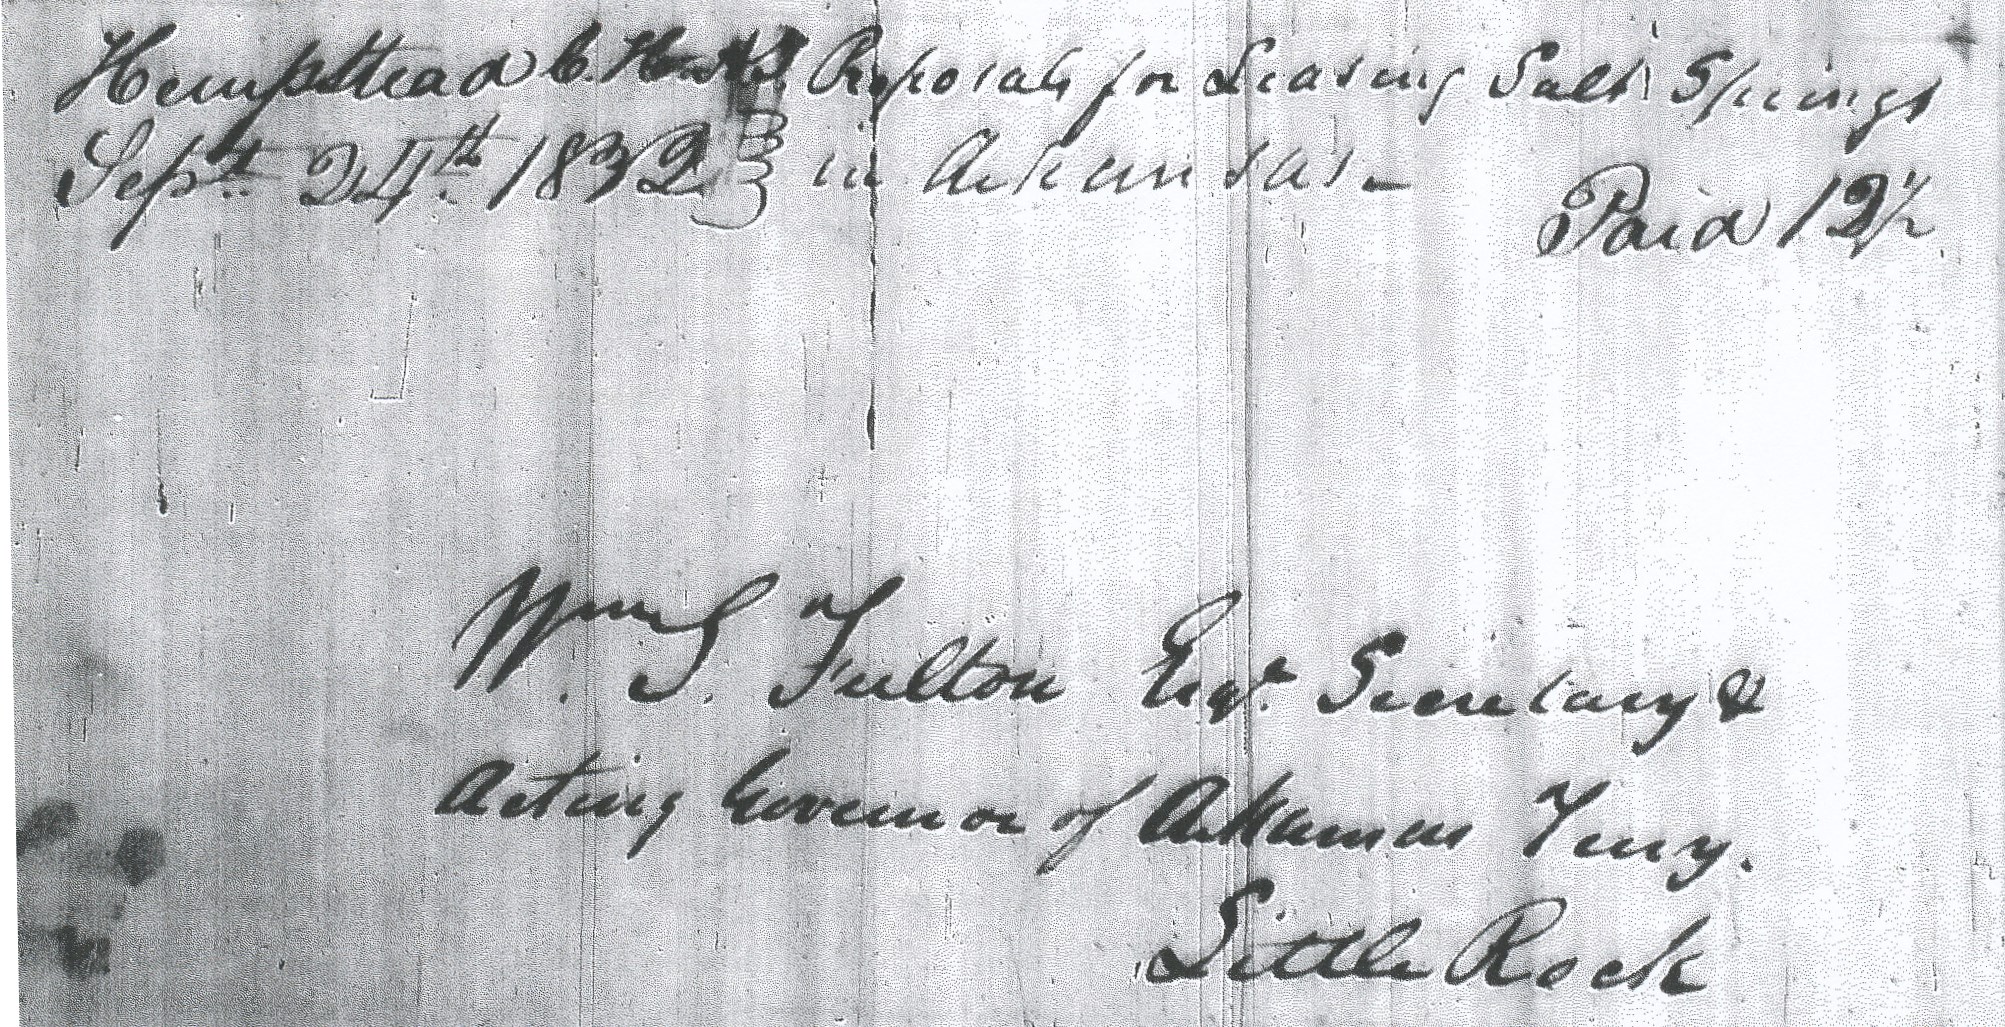 Hempstead C. H. Ark. Proposals for Leasing Salt Springs
Sept. 24th. 1832 in Arkansas.
Paid 12½
Wm. S. Fulton Esqr. Secretary &
Acting Governor of Arkansas Terry.
Little Rock